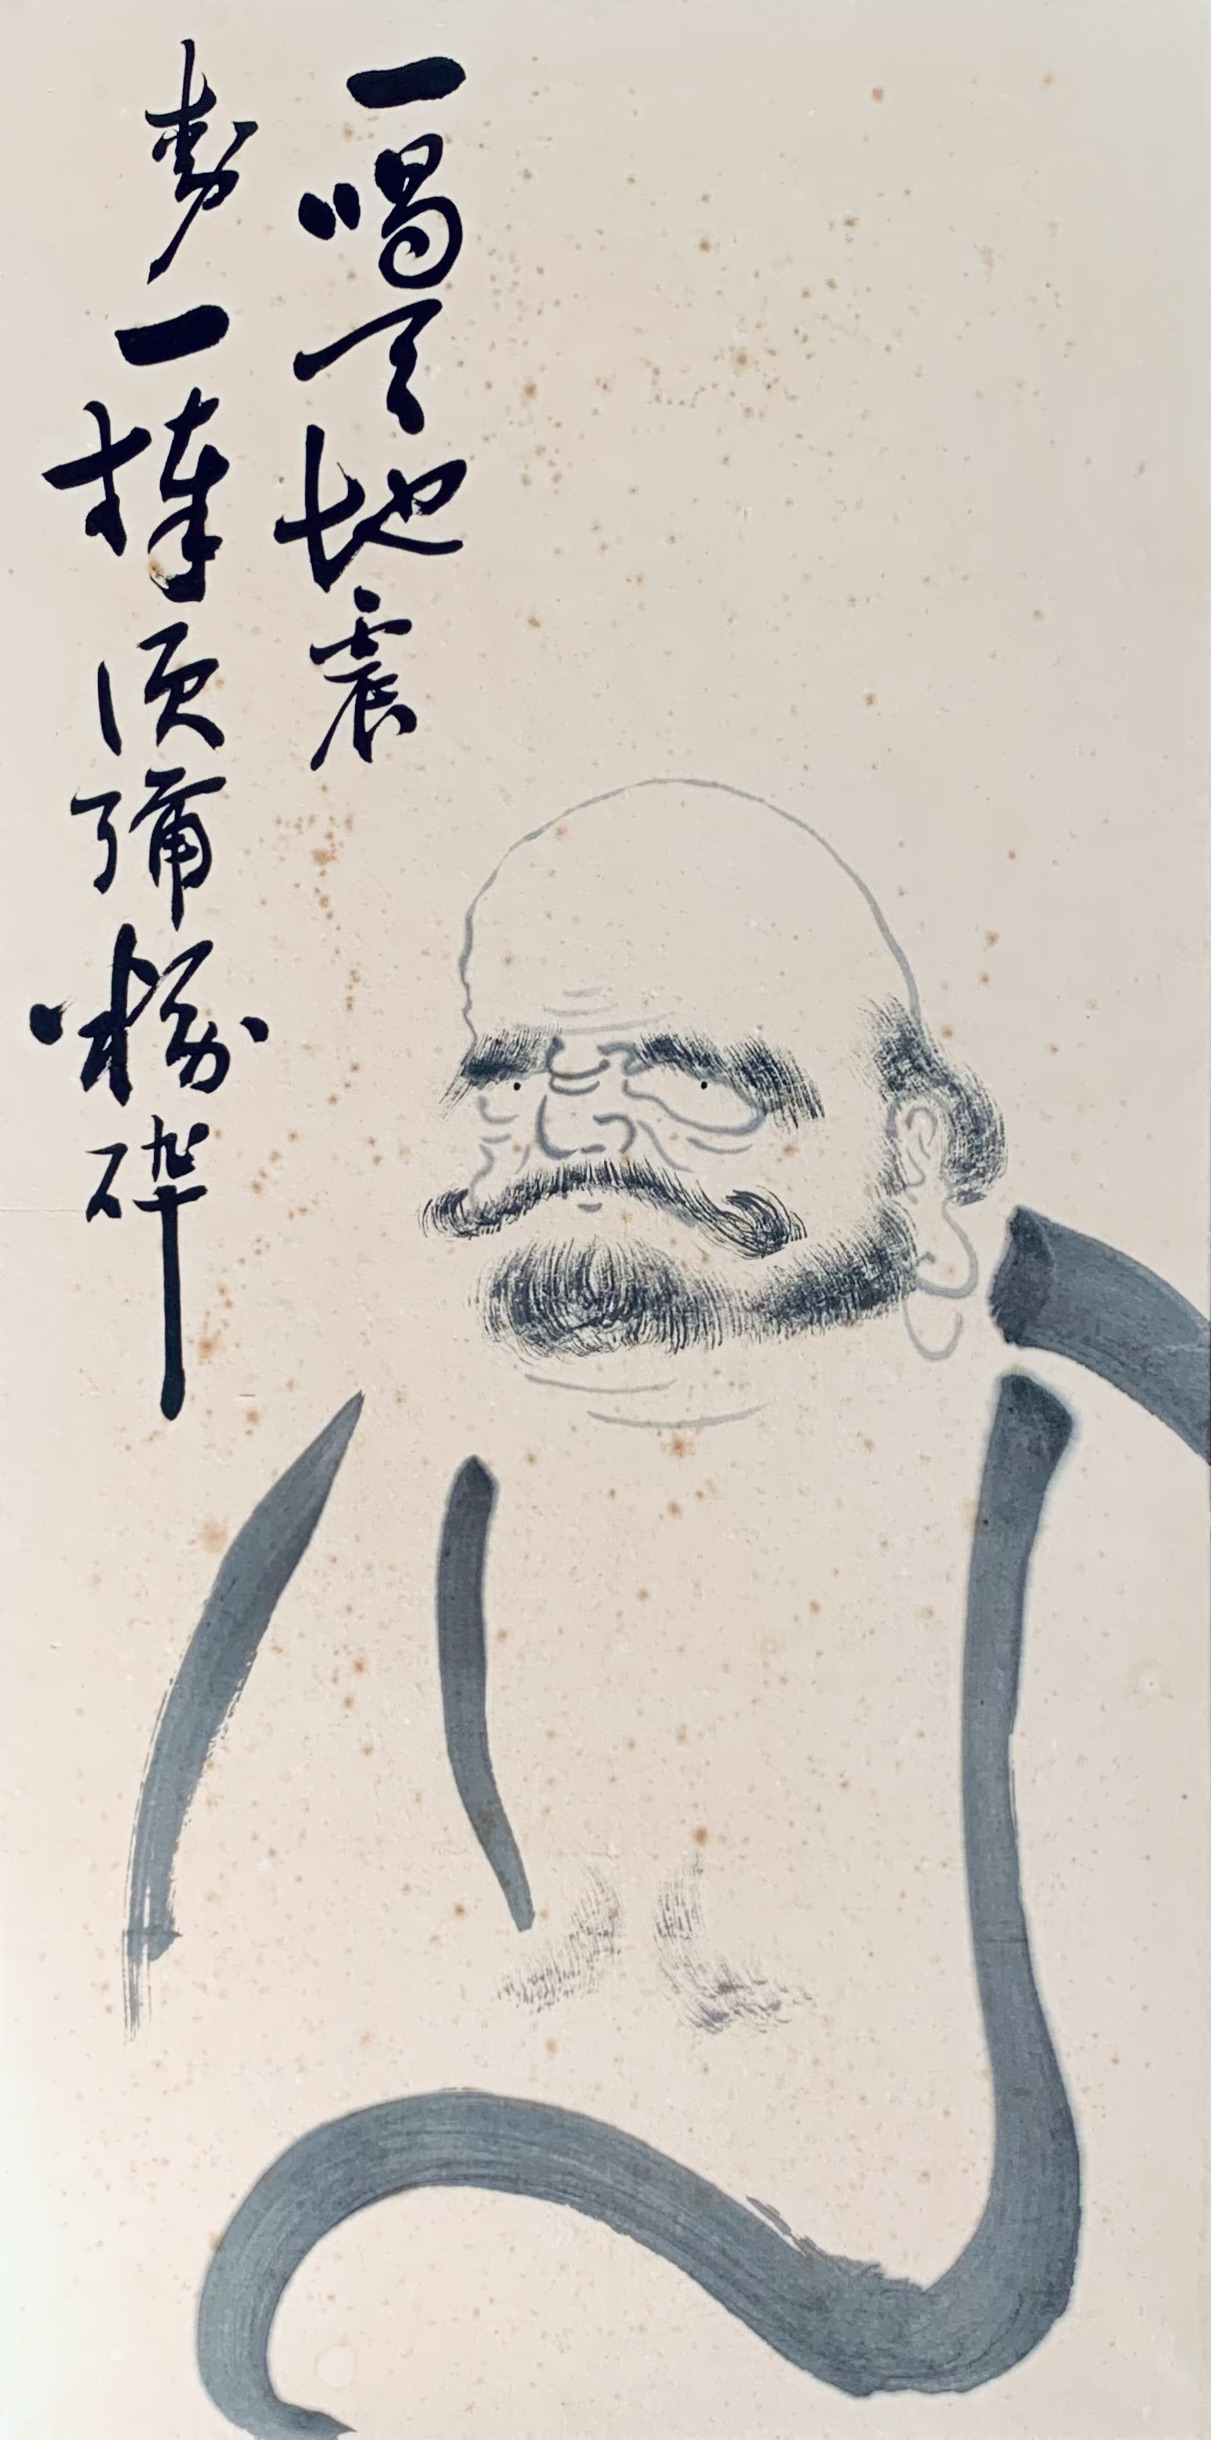 一喝天地震
動一棒須彌粉碎